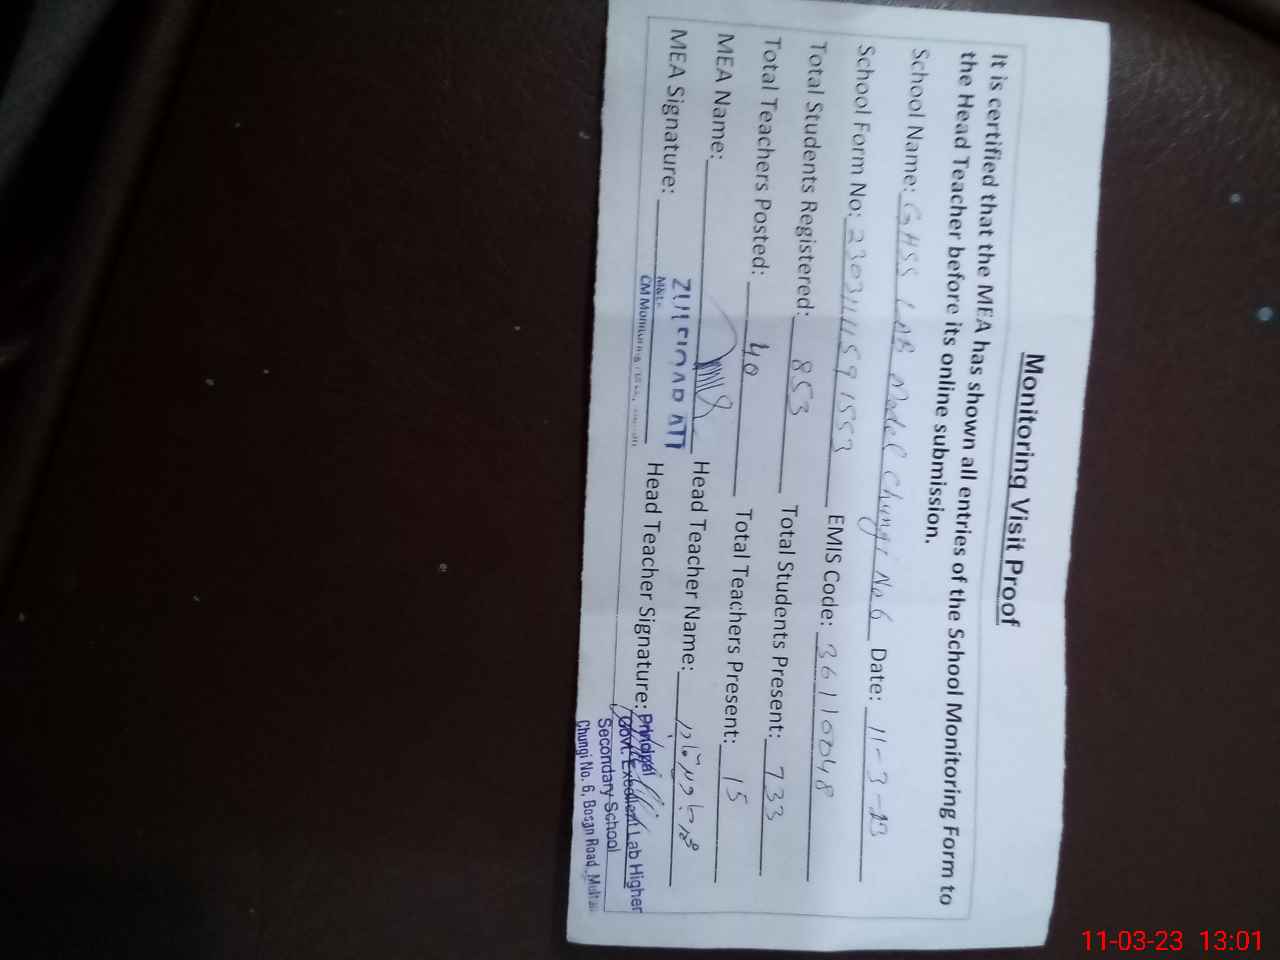 Monitoring Visit Proof
It is certified that the MEA has shown all entries of the School Monitoring Form to
the Head Teacher before its online submission.
School Name: GHSS LAB Model Chungi No 6 Date: 11-3-23
School Form No: EMIS Code: 36110048
Total Students Registered: 853 Total Students Present: 733
Total Teachers Posted: 40 Total Teachers Present: 15
MEA Name: Head Teacher Name:
MEA Signature: Head Teacher Signature:
Principal
Govt. Excellent Lab Higher
Secondary School
Chungi No. 6, Bosan Road, Multan
11-03-23 13:01